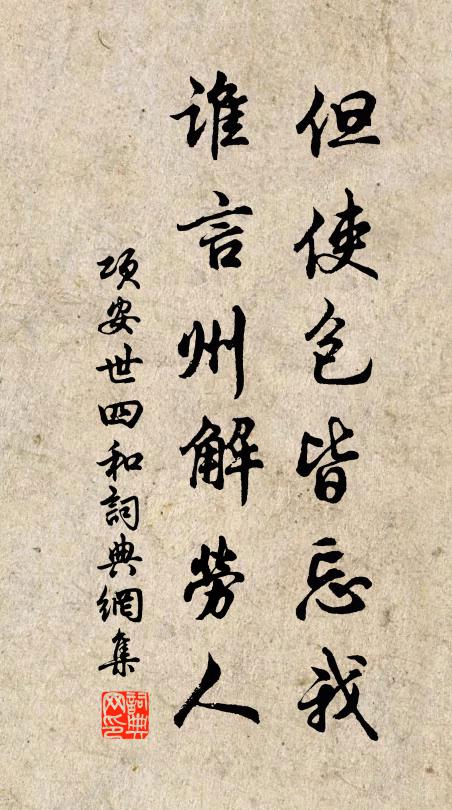 但使邑皆忘我
谁言州解劳人
项安世四和詞典網集
詞典网印